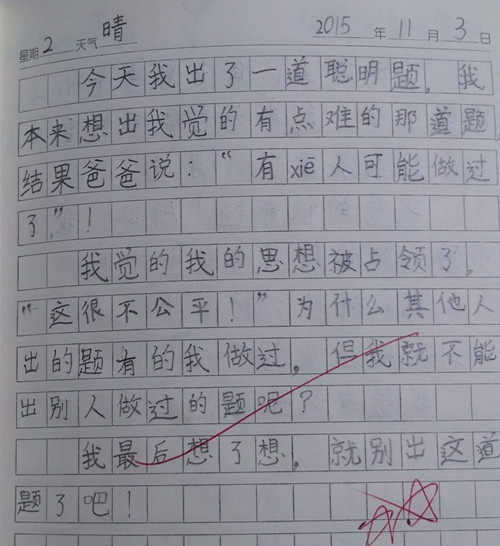 星期 2 天气 晴 2015 年 11 月 3 日
今天我出了一道聪明题，我
本来想出我觉的有点难的那道题
结果爸爸说："有xiē人可能做过
了"！
我觉的我的思想被占领了，
"这很不公平！"为什么其他人
出的题有的我做过，但我就不能
出别人做过的题呢？
我最后想了想，就别出这道
题了吧！